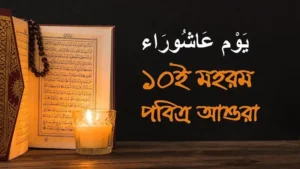 يَوْم عَاشُورَاء
১০ই মহরম
পবিত্র আশুরা